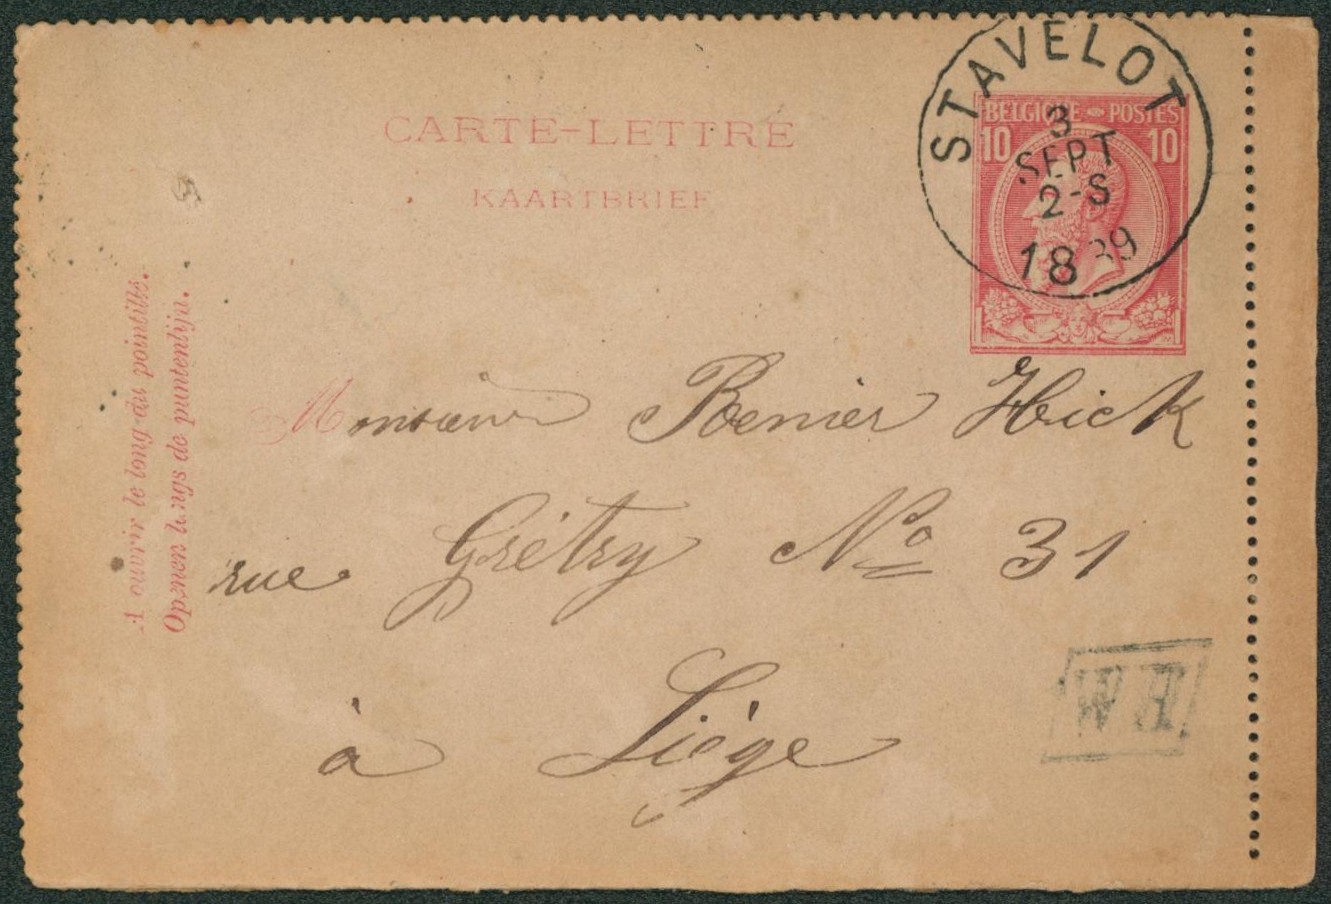 CARTE-LETTRE
KAARTBRIEF
STAVELOT
3
SEPT
2-S
1889
BELGIQUE POSTES
10 10
A ouvrir le long du pointillé.
Openen langs de puntenlijn.
Monsieur Renier Hick
rue Grétry No 31
à Liége